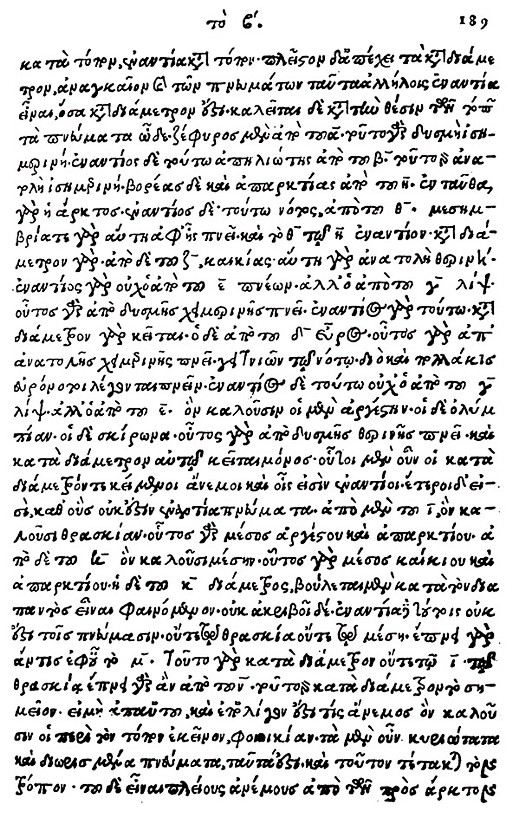 τὸ Β΄. 189
κατὰ τόπον, ἐναντία κατὰ τόπον πλεῖστον δ' ἀπέχει τὰ κατὰ διάμε
τρον, ἀναγκαῖον καὶ τῶν πνευμάτων ταῦτα ἀλλήλοις ἐναντία
εἶναι, ὅσα κατὰ διάμετρον ἐστι. καλεῖται δὲ κατὰ τὴν θέσιν τῶν τόπων
τὰ πνεύματα ὧδε. ζέφυρος μὲν ἀπὸ τοῦ α. τοῦτο γὰρ δυσμὴ ἰση-
μερινή. ἐναντίος δὲ τούτω ἀπηλιώτης ἀπὸ τοῦ β. τοῦτο δ' ἀνα-
τολὴ ἰσημερινή. βορέας δὲ καὶ ἀπαρκτίας ἀπὸ τοῦ η. ἐνταῦθα,
γὰρ ἡ ἄρκτος. ἐναντίος δὲ τούτω νότος, ἀπὸ τοῦ θ. μεσημ-
βρία τε γὰρ αὕτη ἀφ' ἧς πνεῖ. καὶ τὸ θ τῶ η ἐναντίον. κατὰ διά-
μετρον γάρ. ἀπὸ δὲ τοῦ ζ, καικίας. αὕτη γὰρ ἀνατολὴ θερινή.
ἐναντίος γὰρ οὐχ ὁ ἀπὸ τοῦ ε πνέων. ἀλλ' ὁ ἀπὸ τοῦ γ λίψ.
οὗτος γὰρ ἀπὸ δυσμῆς χειμερινῆς πνεῖ. ἐναντίος γὰρ τούτω. κατὰ
διάμετρον γὰρ κεῖται. ὁ δὲ ἀπὸ τοῦ δ εὖρος. οὗτος γὰρ ἀπ'
ἀνατολῆς χειμερινῆς πνεῖ. γειτνιῶν τῶ νότω. διὸ καὶ πολλάκις
εὐρόνοτοι λέγονται πνεῖν. ἐναντίος δὲ τούτω οὐχ ὁ ἀπὸ τοῦ γ
λίψ. ἀλλ' ὁ ἀπὸ τοῦ ε. ὃν καλοῦσιν οἱ μὲν ἀργέστην. οἱ δὲ ὀλυμ
πίαν. οἱ δὲ σκίρωνα. οὗτος γὰρ ἀπὸ δυσμῆς θερινῆς πνεῖ. καὶ
κατὰ διάμετρον αὐτῶ κεῖται μόνος. οὗτοι μὲν οὖν οἱ κατὰ
διάμετρόν τε κείμενοι ἄνεμοι καὶ οἷς εἰσὶν ἐναντίοι. ἕτεροι δ' εἰ-
σὶ, καθ' οὓς οὐκ ἔστιν ἐναντία πνεύματα. ἀπὸ μὲν τοῦ ι, ὃν κα-
λοῦσι θρασκίαν. οὗτος γὰρ μέσος ἀργέστου καὶ ἀπαρκτίου. ἀ
πὸ δὲ τοῦ κ ὃν καλοῦσι μέσην. οὗτος γὰρ μέσος καικίου καὶ
ἀπαρκτίου. ἡ δὲ τοῦ ι κ διάμετρος, βούλεται μὲν κατὰ τὸν δια
παντὸς εἶναι φαινόμενον. οὐκ ἀκριβοῖ δέ. ἐναντία δὲ τούτοις οὐκ
ἔστι τοῖς πνεύμασιν. οὔτε τῶ θρασκία οὔτε τῶ μέση. ἔπνει γὰρ
ἄν τις ἐφ' οὗ τὸ μ. τοῦτο γὰρ κατὰ διάμετρον οὔτε τῶ ι τῶ
θρασκία. ἔπνει γὰρ ἂν ἀπὸ τοῦ ν. τοῦτο γὰρ κατὰ διάμετρον τὸ ση-
μεῖον. εἰ μὴ ἀπ' αὐτοῦ, καὶ ἐπ' ὀλίγον ἔστι τις ἄνεμος ὃν καλοῦ
σιν οἱ περὶ τὸν τόπον ἐκεῖνον, φοινικίαν. τὰ μὲν οὖν κυριώτατα
καὶ διωρισμένα πνεύματα, ταῦτά ἐστι. καὶ τοῦτον τέτακται τὸν
τρόπον. τοῦ δὲ εἶναι πλείους ἀνέμους ἀπὸ τῶν πρὸς ἄρκτον